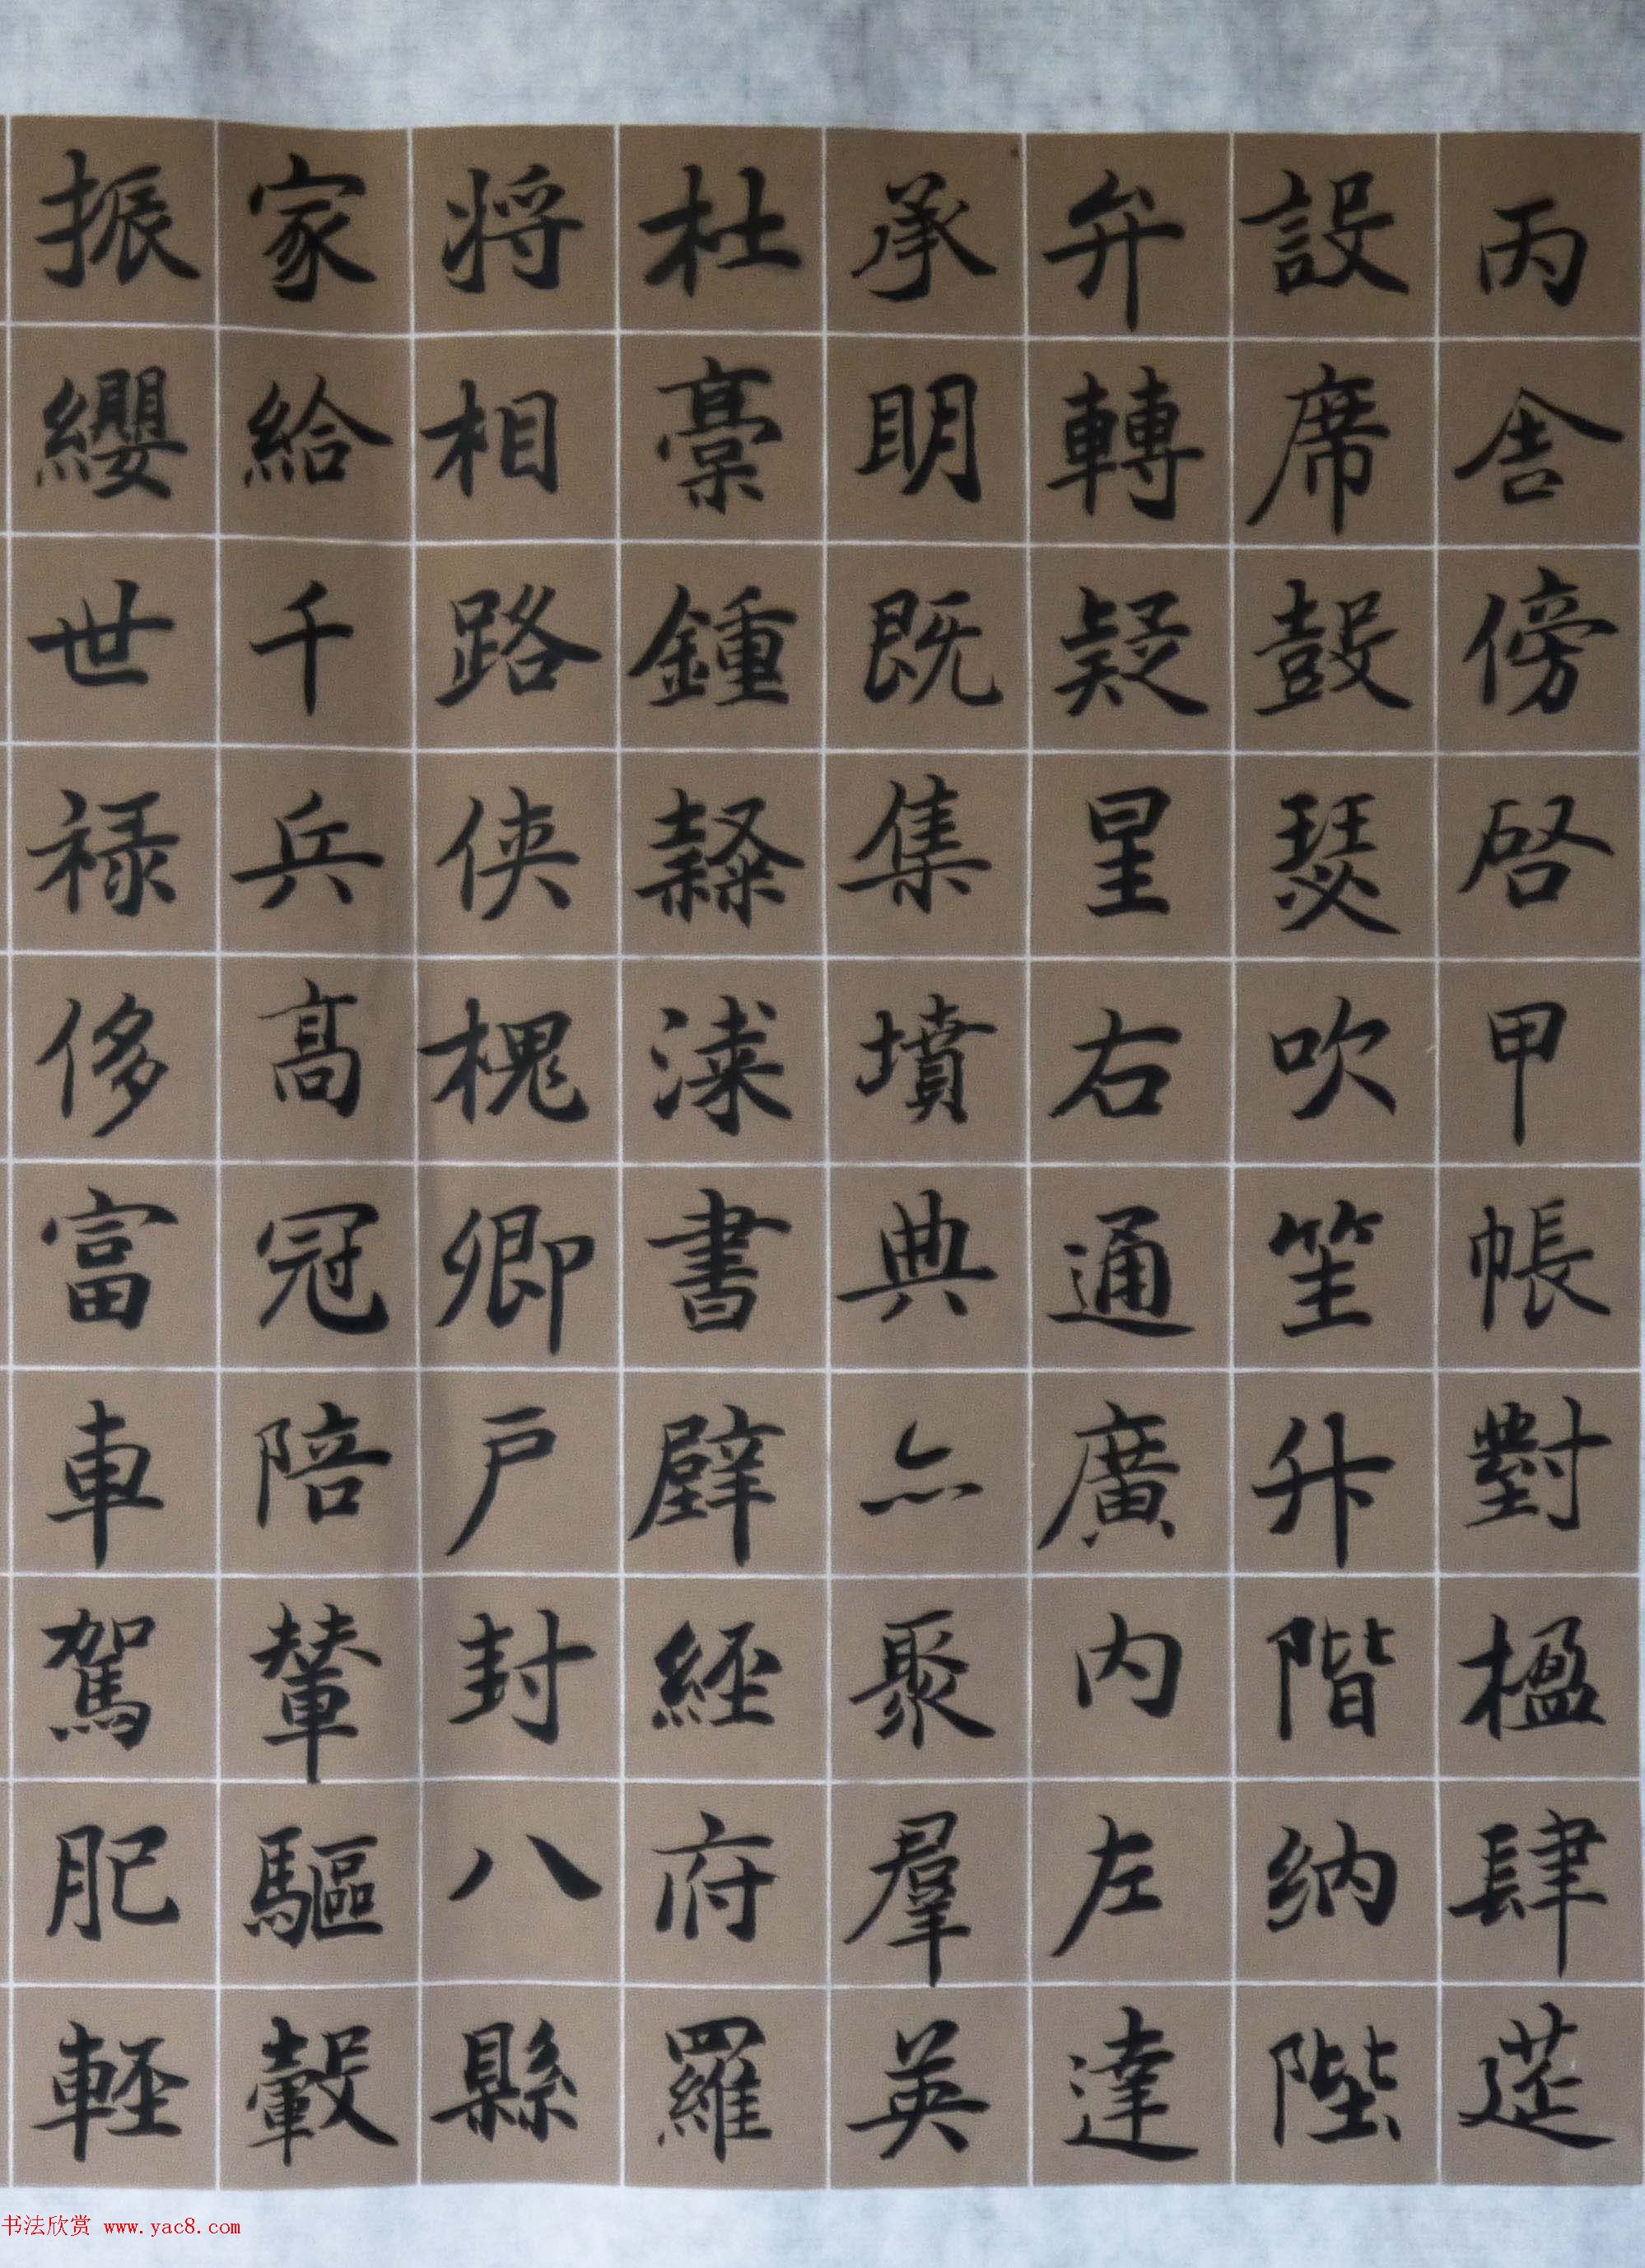 丙舍傍啓甲帳對楹肆筵
設席鼓瑟吹笙升階納陛
弁轉疑星右通廣内左達
承明既集墳典亦聚羣英
杜稾鍾隸漆書壁經府羅
将相路俠槐卿户封八縣
家給千兵高冠陪輦驅轂
振纓世禄侈富車駕肥輕
书法欣赏 www.yac8.com